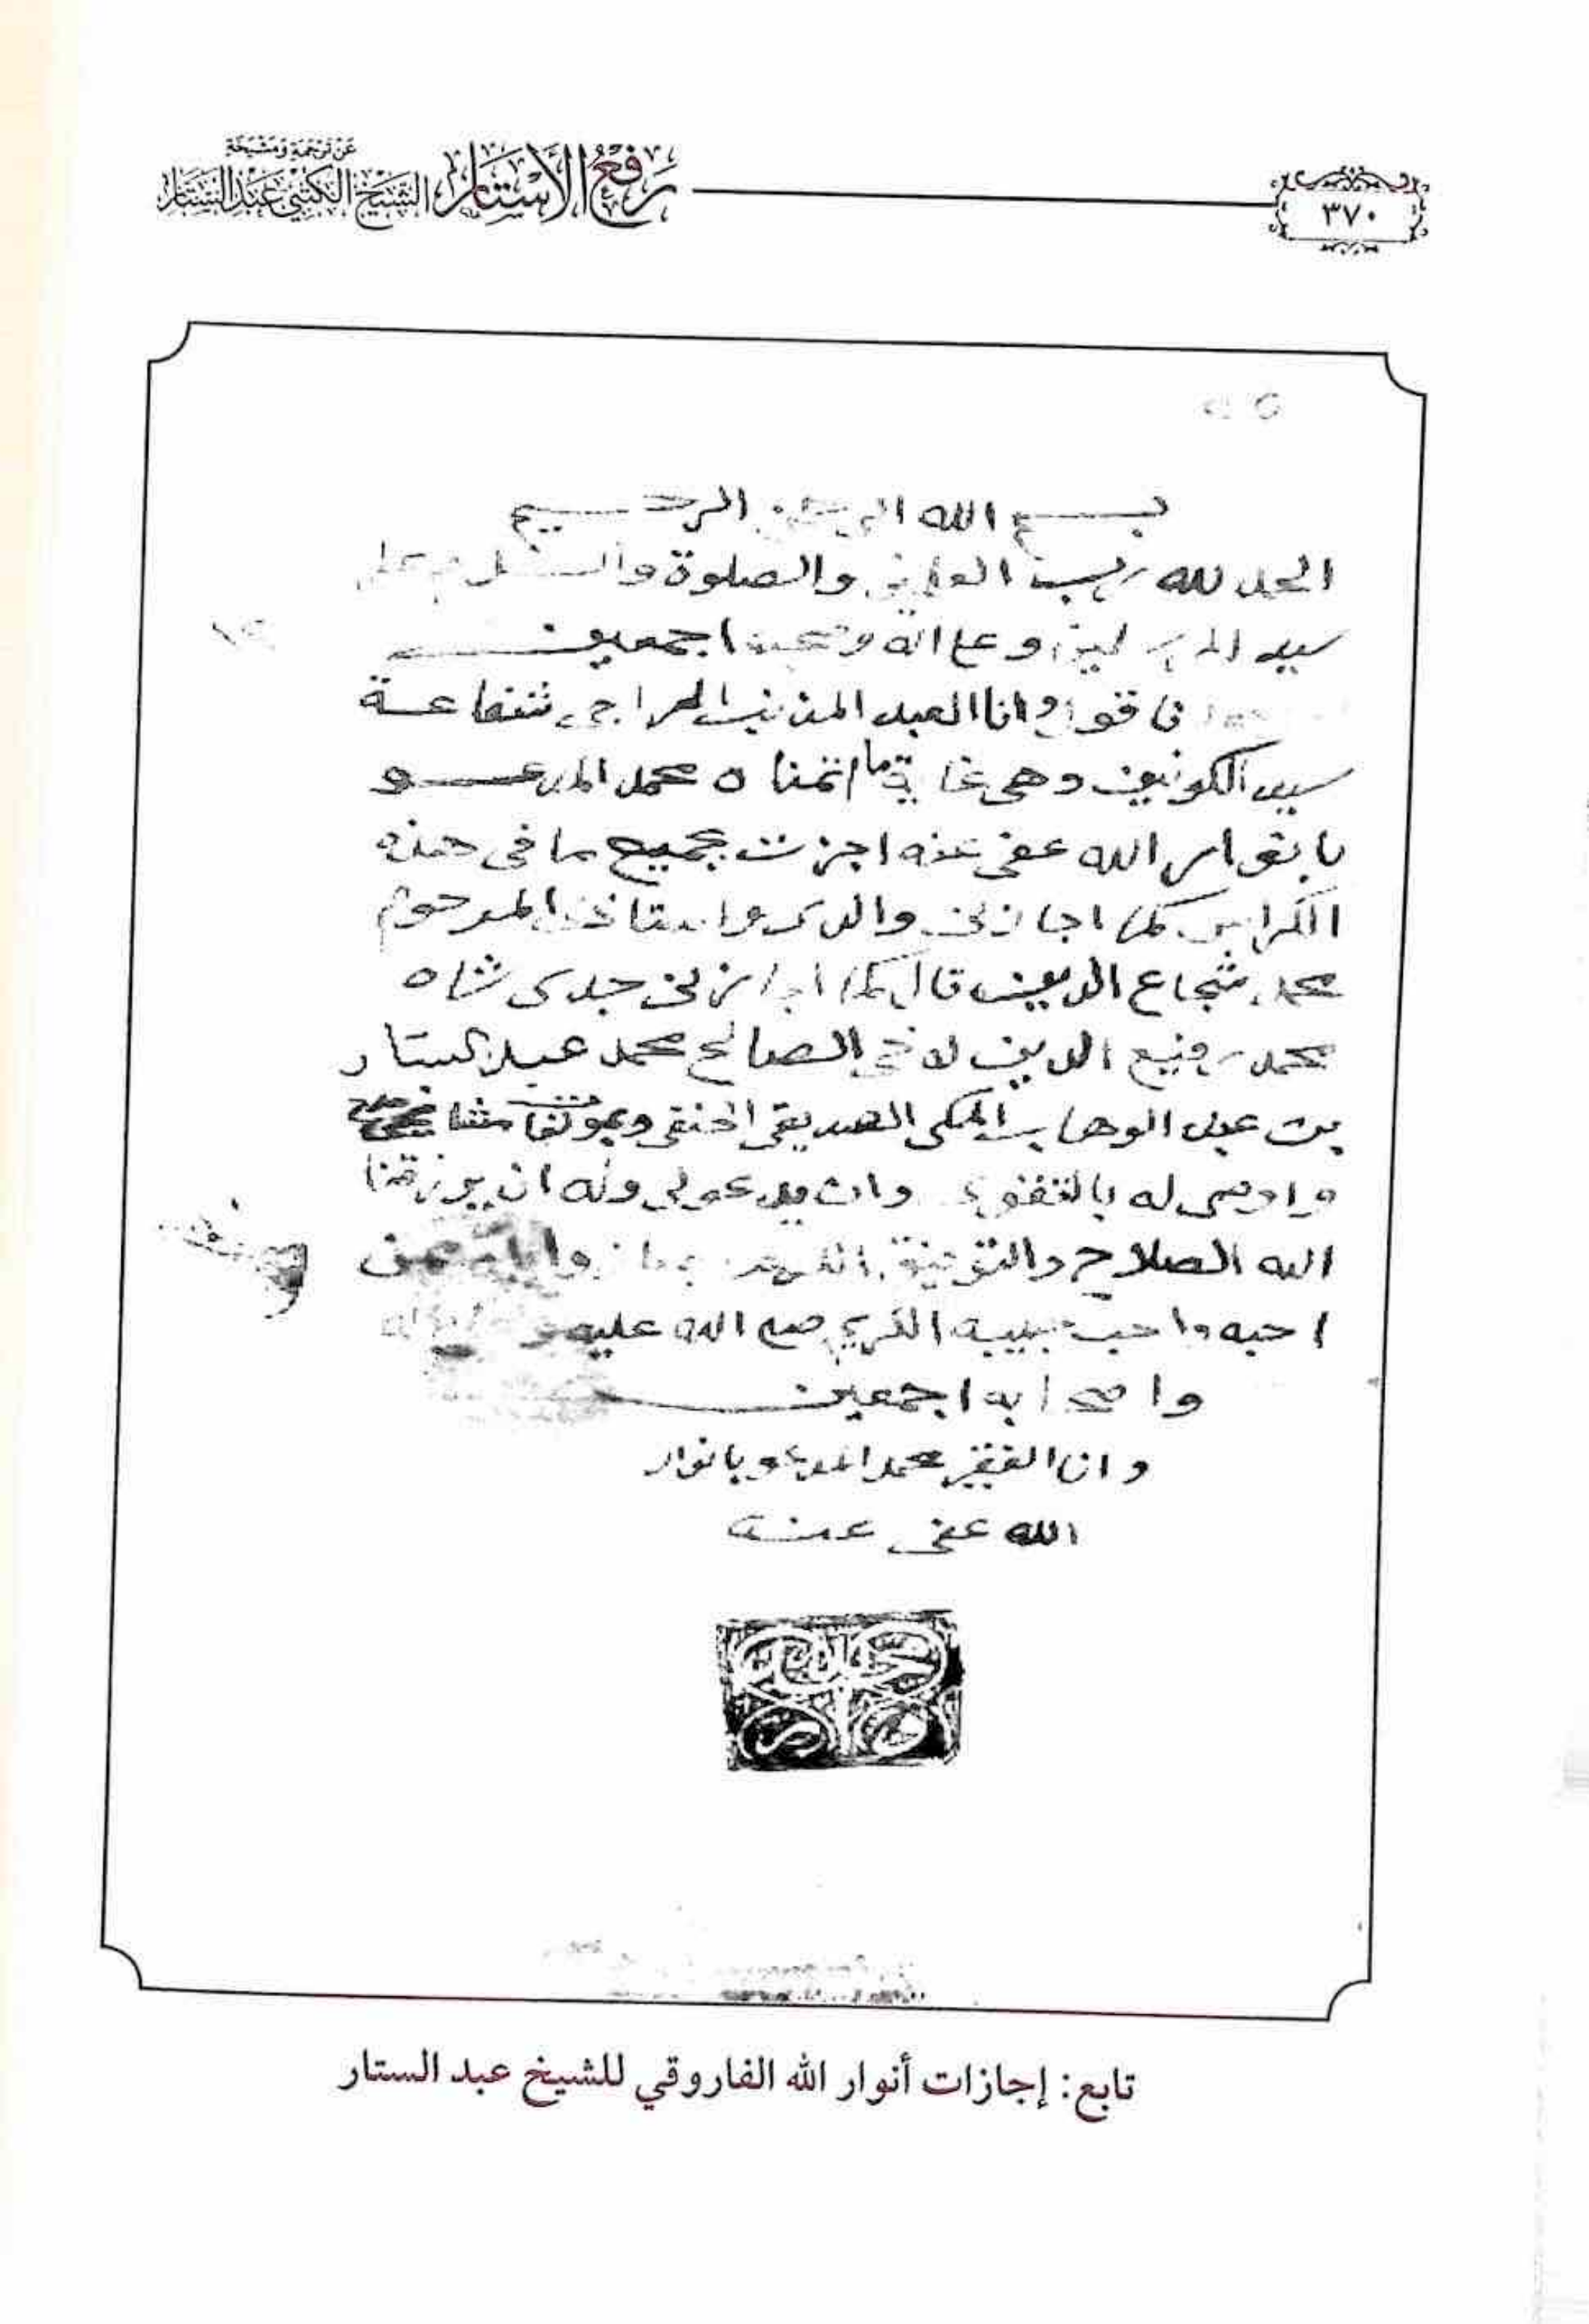 ٣٧٠
رفع الأستار
عن ترجمة ومشيخة
الشيخ الكتبي عبد الستار
بسم الله الرحمن الرحيم
الحمد لله رب العالمين والصلوة والسلام على
سيد المرسلين وعلى اله وصحبه اجمعين
فاقول وانا العبد المذنب الراجي شفاعة
سيد الكونين وهي غاية ما اتمناه محمد المدعو
بانوار الله عفى عنه اجزت بجميع ما في هذه
الكراس كما اجازنى والدى واستاذى المرحوم
محمد شجاع الدين قال كما اجازنى جدى شاه
محمد رفيع الدين لاخى الصالح محمد عبد الستار
بن عبد الوهاب المكى الصديقى الحنفى
واوصى له بالتقوى وان يدعو لى وله ان يرزقنا
الله الصلاح والتوفيق
احبه واحب حبيبه الكريم صلى الله عليه
واصحابه اجمعين
وانا الفقير محمد المدعو بانوار
الله عفى عنه
تابع: إجازات أنوار الله الفاروقي للشيخ عبد الستار